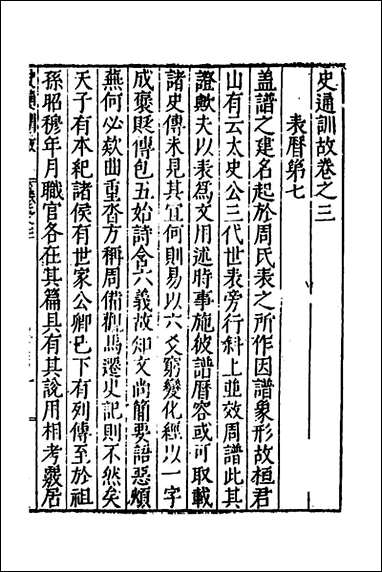 史通訓故卷之三
表曆第七
蓋譜之建名起於周氏表之所作因譜象形故桓君
山有云太史公三代世表旁行斜上並效周譜此其
證歟夫以表為文用述時事施彼譜曆容或可取載
諸史傳未見其宜何則易以六爻窮變化經以一字
成褒貶傳包五始詩含六義故知文尚簡要語惡煩
蕪何必欵曲重沓方稱周備觀馬遷史記則不然矣
天子有本紀諸侯有世家公卿已下有列傳至於祖
孫昭穆年月職官各在其篇具有其說用相考覈居